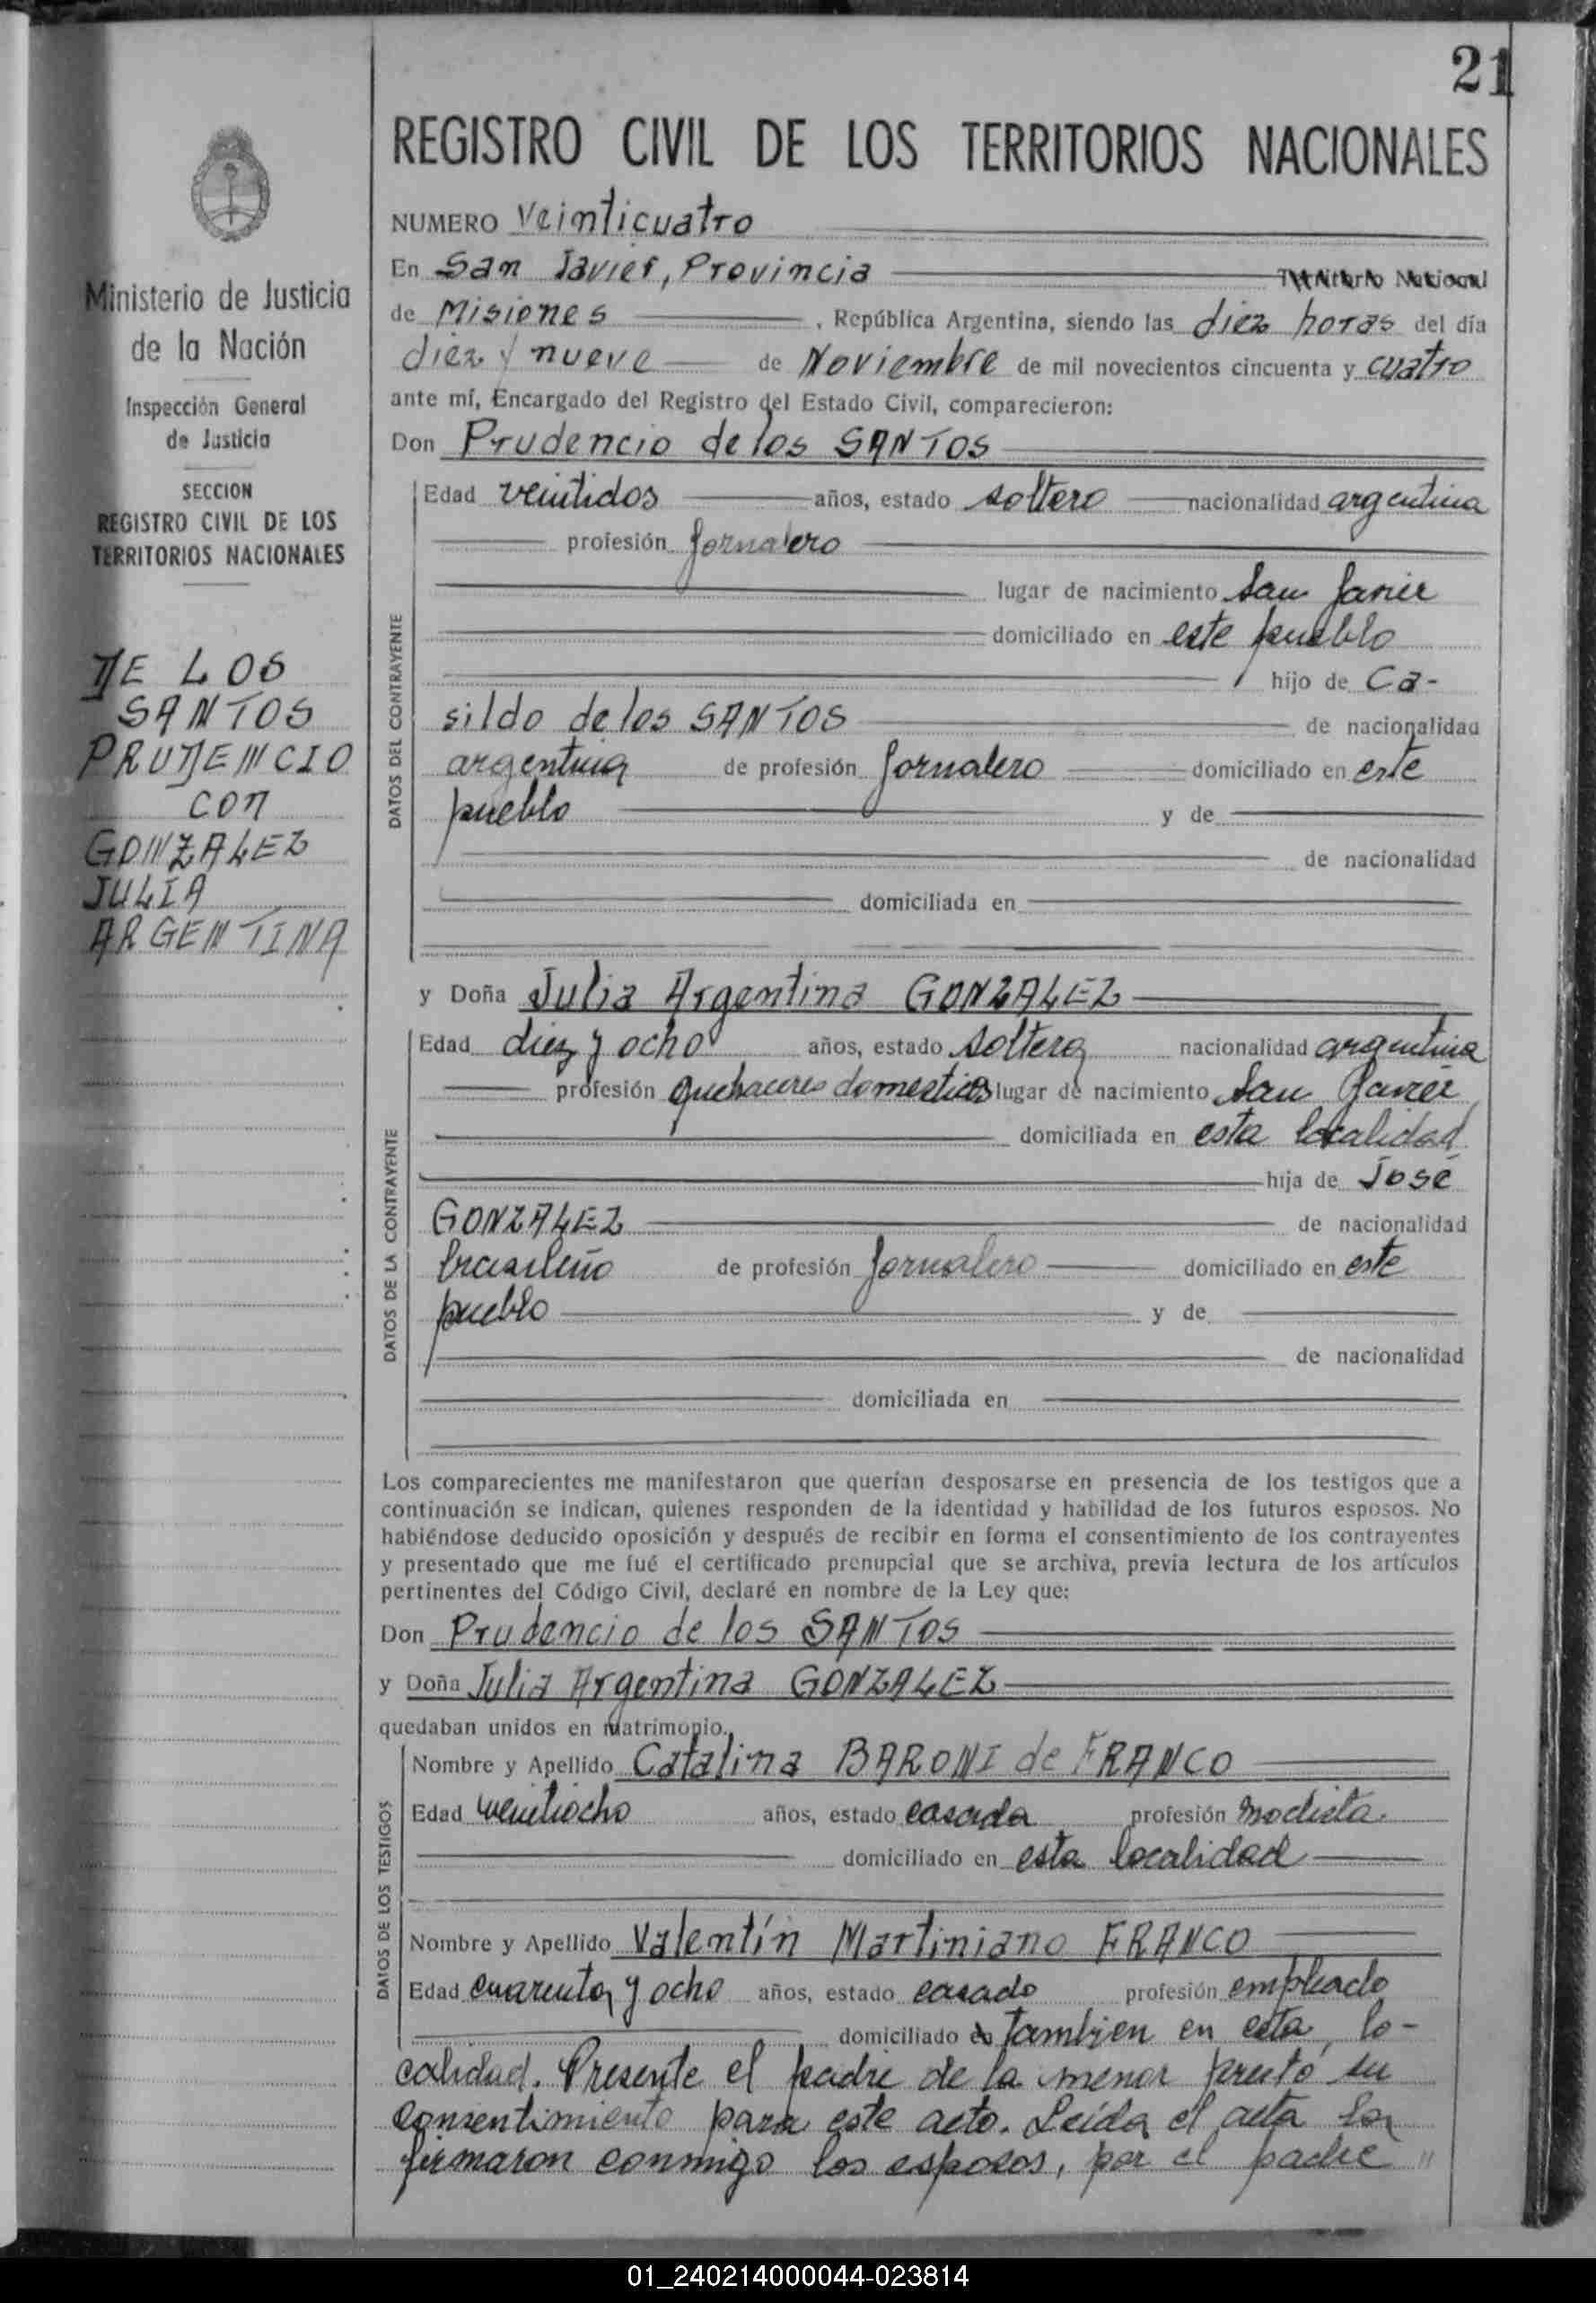 21
REGISTRO CIVIL DE LOS TERRITORIOS NACIONALES
Ministerio de Justicia
de la Nación
Inspección General
de Justicia
SECCION
REGISTRO CIVIL DE LOS
TERRITORIOS NACIONALES
DE LOS
SANTOS
PRUDENCIO
con
GONZALEZ
JULIA
ARGENTINA
NUMERO Veinticuatro
En San Javier, Provincia Territorio Nacional
de Misiones , República Argentina, siendo las diez horas del día
diez y nueve de Noviembre de mil novecientos cincuenta y cuatro
ante mí, Encargado del Registro del Estado Civil, comparecieron:
Don Prudencio de los SANTOS
DATOS DEL CONTRAYENTE
Edad veintidos años, estado soltero nacionalidad argentina
profesión Jornalero
lugar de nacimiento San Javier
domiciliado en este pueblo
hijo de Ca-
sildo de los SANTOS de nacionalidad
argentina de profesión Jornalero domiciliado en este
pueblo y de
de nacionalidad
domiciliada en
y Doña Julia Argentina GONZALEZ
DATOS DE LA CONTRAYENTE
Edad diez y ocho años, estado soltera nacionalidad argentina
profesión quehaceres domesticos lugar de nacimiento San Javier
domiciliada en esta localidad
hija de José
GONZALEZ de nacionalidad
brasileño de profesión Jornalero domiciliado en este
pueblo y de
de nacionalidad
domiciliada en
Los comparecientes me manifestaron que querían desposarse en presencia de los testigos que a
continuación se indican, quienes responden de la identidad y habilidad de los futuros esposos. No
habiéndose deducido oposición y después de recibir en forma el consentimiento de los contrayentes
y presentado que me fué el certificado prenupcial que se archiva, previa lectura de los artículos
pertinentes del Código Civil, declaré en nombre de la Ley que:
Don Prudencio de los SANTOS
y Doña Julia Argentina GONZALEZ
quedaban unidos en matrimonio.
DATOS DE LOS TESTIGOS
Nombre y Apellido Catalina BARONI de FRANCO
Edad veintiocho años, estado casada profesión modista
domiciliado en esta localidad
Nombre y Apellido Valentín Martiniano FRANCO
Edad cuarenta y ocho años, estado casado profesión empleado
domiciliado en tambien en esta lo-
calidad. Presente el padre de la menor prestó su
consentimiento para este acto. Leída el acta la
firmaron conmigo los esposos, por el padre "
01_240214000044-023814